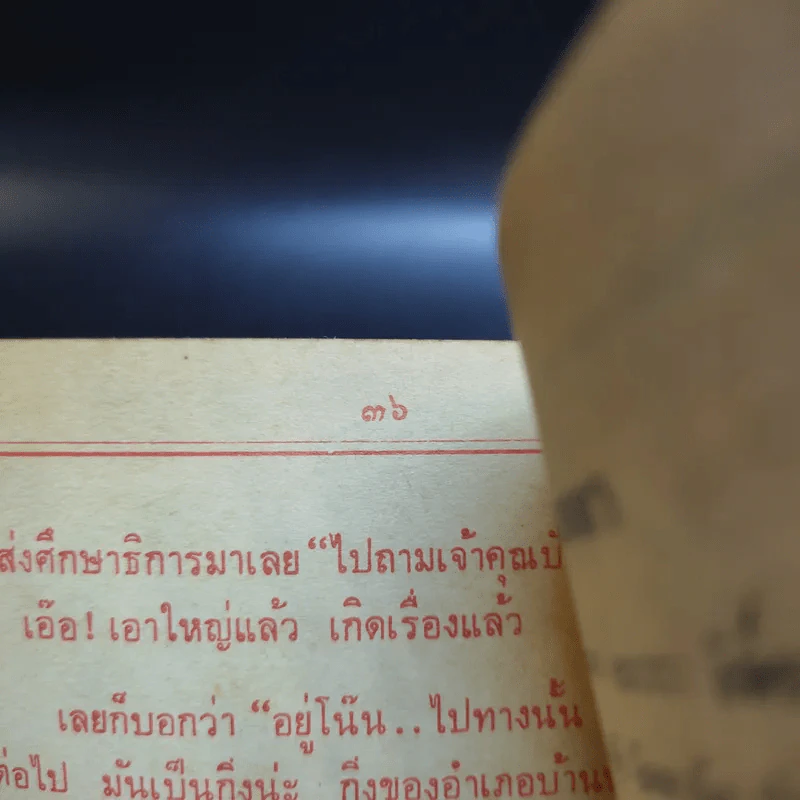 ๓๖
ส่งศึกษาธิการมาเลย “ไปถามเจ้าคุณบั
เอ๊อ! เอาใหญ่แล้ว เกิดเรื่องแล้ว
เลยก็บอกว่า “อยู่โน๊น.. ไปทางนั้น
ต่อไป มันเป็นกิ่งน่ะ กิ่งของอำเภอบ้าน